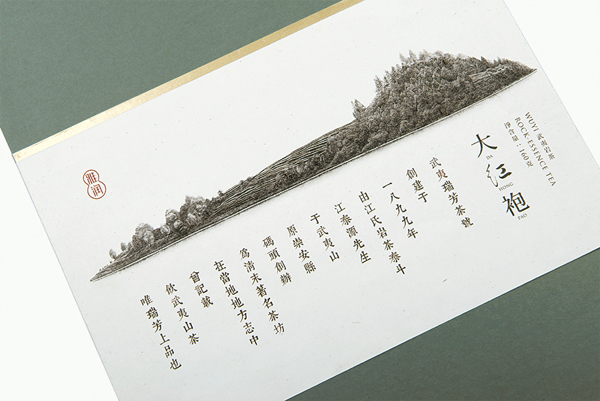 WUYI 武夷岩茶
ROCK-ESENCE TEA
净含量：160克
大红袍
DA
HONG
PAO
武夷瑞芳茶號
創建于
一八九九年
由江氏岩茶泰斗
江泰源先生
于武夷山
原崇安縣
碼頭創辦
爲清末著名茶坊
在當地地方志中
曾記載
飲武夷山茶
唯瑞芳上品也